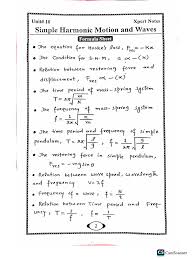 Unit# 10 Xpert Notes
Simple Harmonic Motion and Waves
Formula Sheet
• The equation for Hooke's law, Fres = -Kx
• The Condition for S.H.M. a ∝ -(x)
• Relation between restoring force and
displacement, Fres ∝ -(x)
• The time period of mass-spring system
T = 2π√m/k
• The frequency of mass-spring system
f = 1/2π √k/m
• The time period and frequency of simple
pendulum, T = 2π√l/g, f = 1/2π √g/l
• The restoring force in simple pendulum
• Relation between wave speed, wavelength
and frequency V = λf
• Frequency of a wave, f = n/t
• Relation between Time period and Freq-
uency T = 1/f, f = 1/T
2
CamScanner